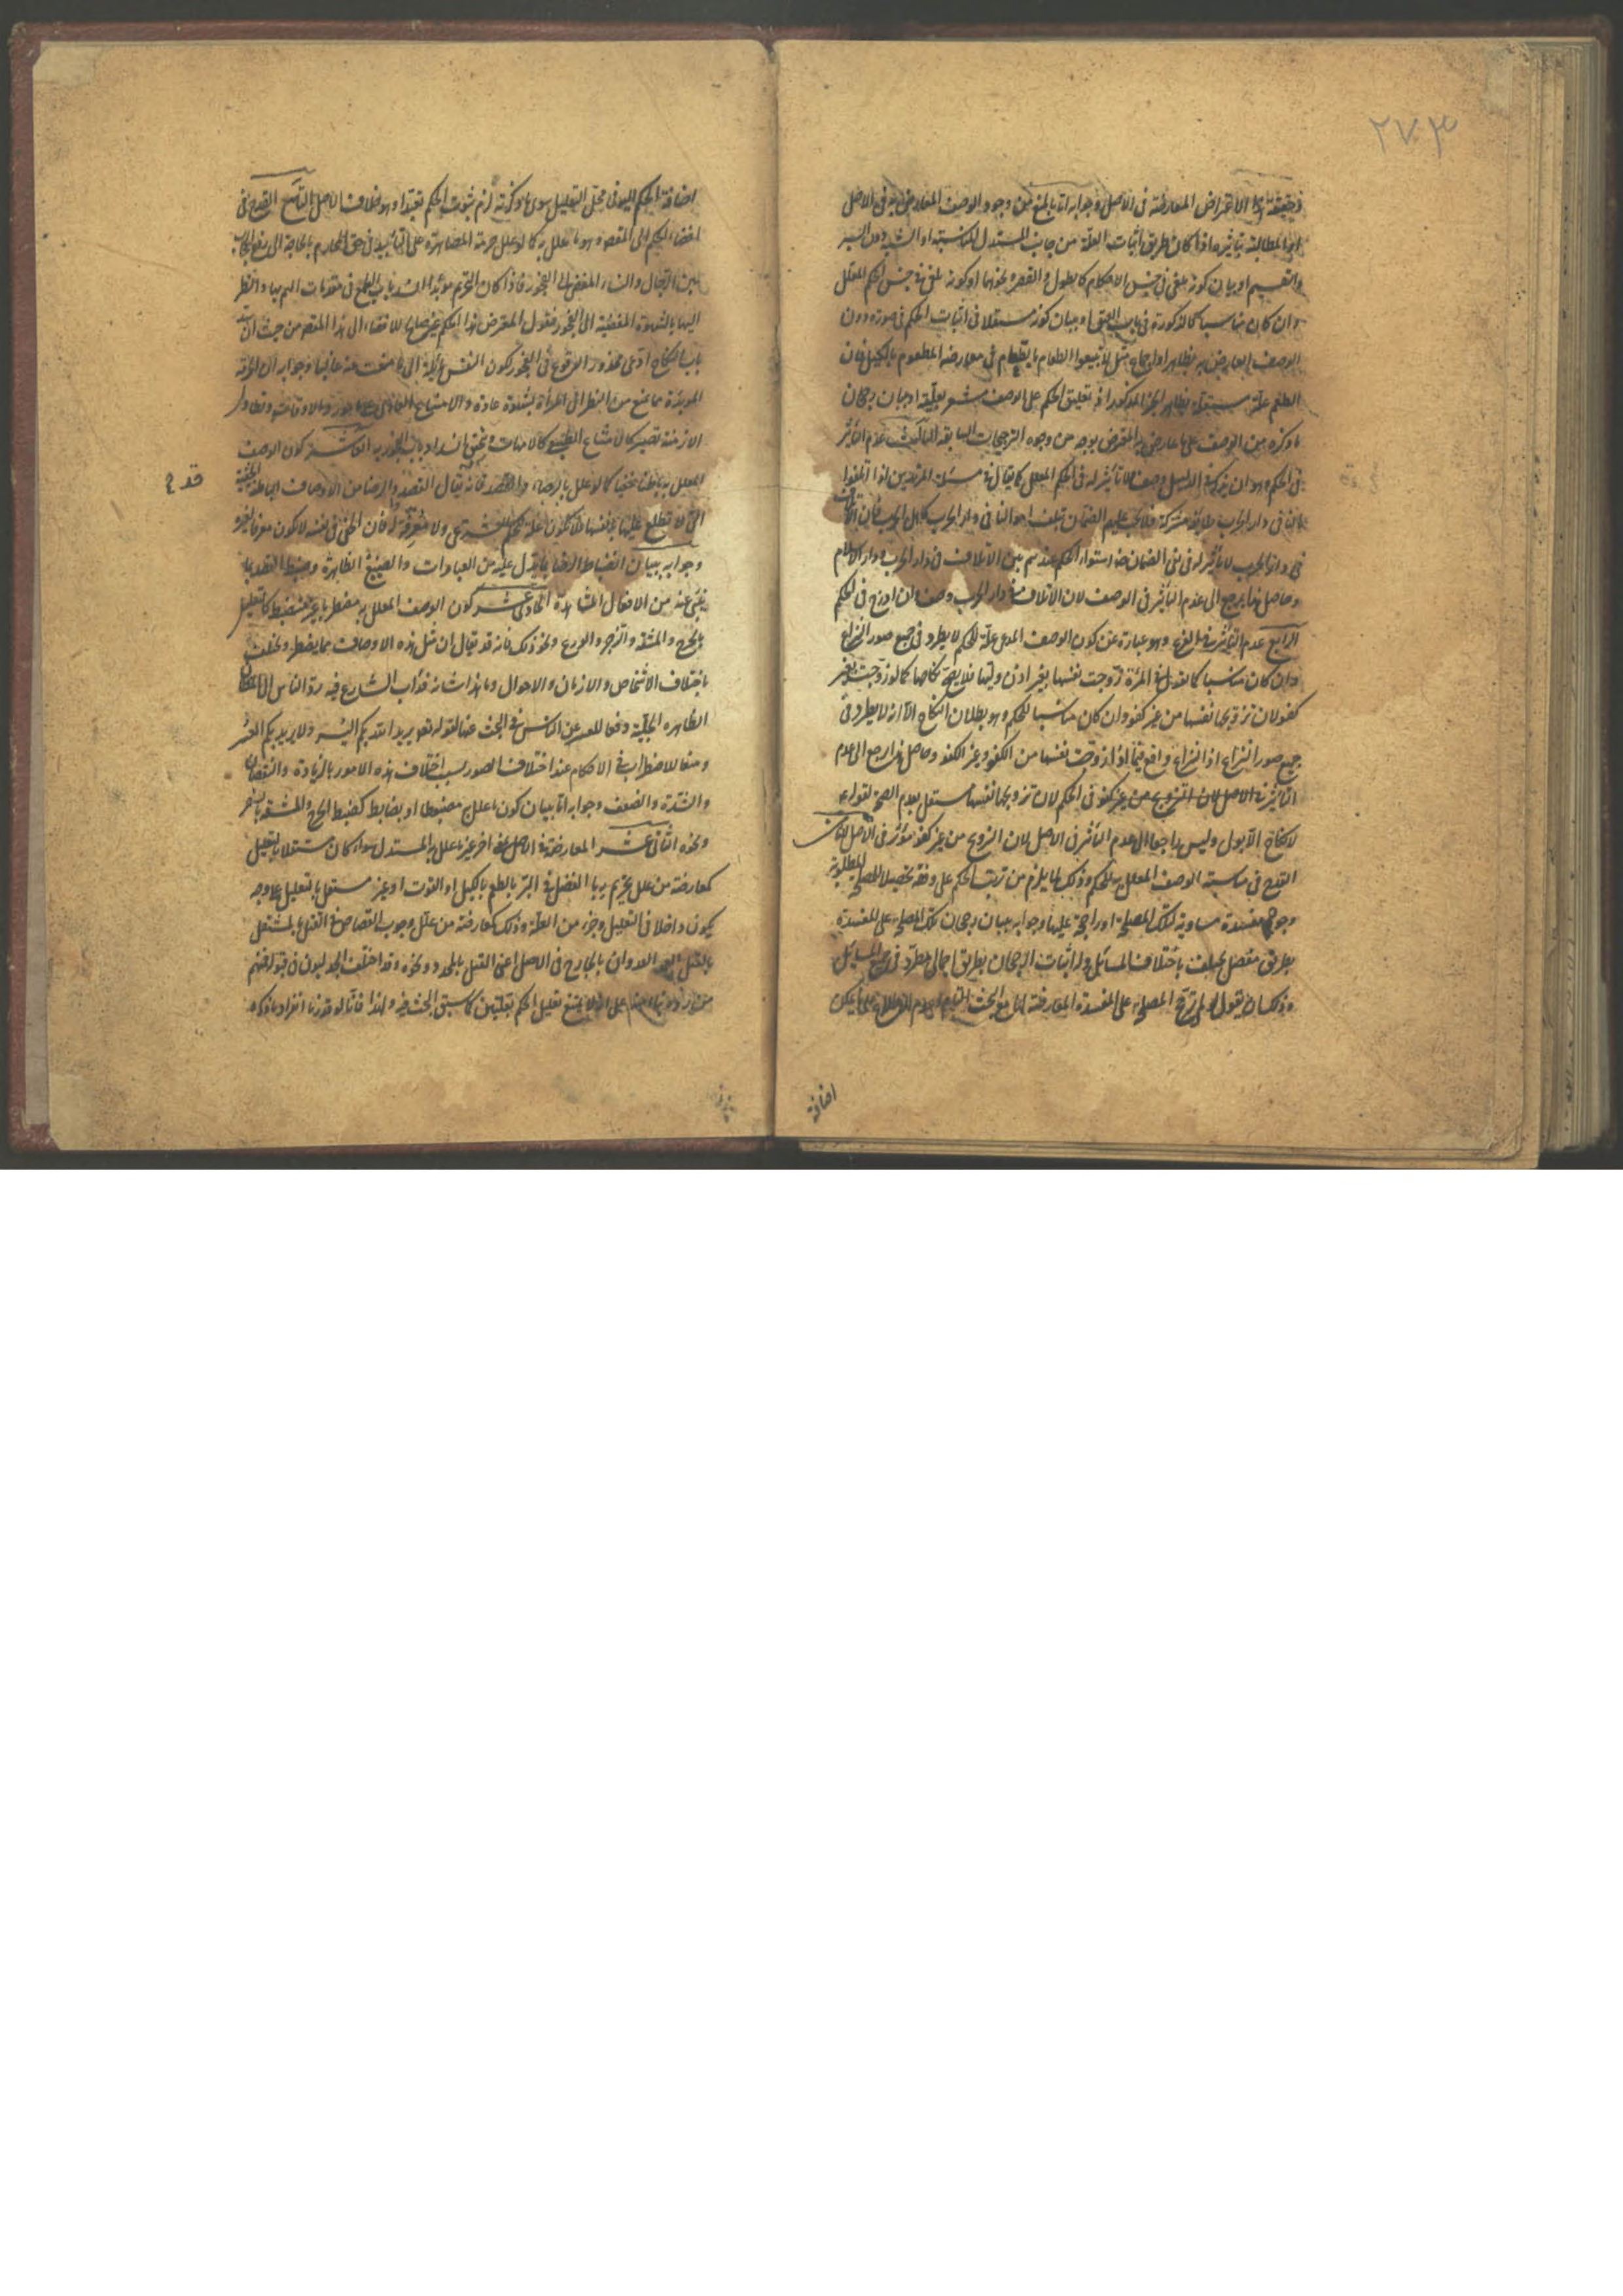 ٢٧٣
فحقيقة هذا الاعتراض المعارضة في الاصل وجوابه اما بالمنع من وجود الوصف المعارض به في الاصل
او المطالبة بتأثيره اذا كان طريق اثبات العلة من جانب المستدل المناسبة او الشبه دون السبر
والتقسيم او بيان كونه ملغى في جنس الاحكام كالطول والقصر ونحوهما او كونه ملغى في جنس الحكم المعلل
وان كان مناسبا كالذكورة في باب العتق او بيان كونه مستقلا في اثبات الحكم في صورة دون
الوصف المعارض به بظاهر او اجماع مثل لا تبيعوا الطعام بالطعام في معارضة المطعوم بالكيل فان
الطعم علة مستقلة بظاهر الخبر المذكور اذ تعليق الحكم على الوصف مشعر بعليته او ببيان رجحان
ما ذكره من الوصف على ما عارض به المعترض بوجه من وجوه الترجيحات السابقة الثالث عدم التأثير
في الحكم وهو ان يذكر في الدليل وصف لا تأثير له في الحكم المعلل كما يقال في مسئلة المرتدين اذا اتلفوا
مالنا في دار الحرب طائفة مشركة فلا يجب عليهم الضمان بتلف اموالنا في دار الحرب كاهل الحرب فان الاتلاف
في دار الحرب لا تأثير له في نفي الضمان ضرورة استواء الحكم عندهم بين الاتلاف في دار الحرب ودار الاسلام
وحاصل هذا يرجع الى عدم التأثير في الوصف لان الاتلاف في دار الحرب وصف وان ادرج في الحكم
الرابع عدم التأثير في الفرع وهو عبارة عن كون الوصف المدعى علة للحكم لا يطرد في جميع صور النزاع
وان كان مناسبا كما يقال في المرأة زوجت نفسها بغير اذن وليها فلا يصح نكاحها كما لو زوجت بغير
كفو لان تزويجها نفسها من غير كفو وان كان مناسبا للحكم وهو بطلان النكاح الا انه لا يطرد في
جميع صور النزاع اذ النزاع واقع فيما اذا زوجت نفسها من الكفو وغير الكفو وحاصل هذا يرجع الى عدم
التأثير في الاصل لان التزويج من غير كفو في الحكم لان تزويجها نفسها مستقل بعدم الصحة لقوله ع
لا نكاح الا بولي وليس راجعا الى عدم التأثير في الاصل لان التزويج من غير كفو مؤثر في الاصل الثامن
القدح في مناسبة الوصف المعلل به للحكم وذلك لما يلزم من ترتب الحكم على وفقه تحصيلا للمصلحة المطلوبة
وجود مفسدة مساوية لتلك المصلحة او راجحة عليها وجوابه ببيان رجحان تلك المصلحة على المفسدة
بطريق مفصل يختلف باختلاف المسائل وله اثبات الرجحان بطريق اجمالي مطرد في جميع المسائل
وذلك ان يقول لو لم ترجح المصلحة على المفسدة المعارضة لها مع البحث التام وعدم الاطلاع على ما يمكن
اضافة
اضافة الحكم اليه في محل التعليل سوى ما ذكرته لزم ثبوت الحكم تعبدا وهو خلاف الاصل التاسع القدح في
افضاء الحكم الى المقصود وهو ما علل به كما لو علل حرمة المصاهرة على التأبيد في حق المحارم بالحاجة الى رفع الحجاب
بين الرجال والنساء المفضي الى الفجور فاذا كان التحريم مؤبدا انسد باب الطمع في مقدمات الهم بها والنظر
اليها بالشهوة المفضية الى الفجور فيقول المعترض هذا الحكم غير صالح للافضاء الى هذا المقصود من حيث ان سد
باب النكاح ادعى محذور الوقوع في الفجور لكون النفس مائلة الى ما منعت عنه غالبا وجوابه ان الحرمة
المؤبدة مما تمنع من النظر الى المرأة بشهوة عادة والامتناع العادي على مرور الاوقات وتطاول
الازمنة تصير كالامتناع الطبيعي كالامهات وتحقق انسداد باب الفجور به العاشر كون الوصف
المعلل به باطنا خفيا كما لو علل بالرضاء والقصد فانه يقال القصد والرضا من الاوصاف الباطنة الخفية
قد ع
التي لا تطلع عليها بنفسها فلا تكون علة للحكم الشرعي ولا معرفة له فان الخفي في نفسه لا يكون معرفا لغيره
وجوابه ببيان انضباط الرضا بما يدل عليه من العبارات والصيغ الظاهرة وضبط القصد بما
ينبئ عنه من الافعال المشاهدة الحادي عشر كون الوصف المعلل به مضطربا غير منضبط كالتعليل
بالحرج والمشقة والزجر والردع ونحو ذلك فانه قد يقال ان مثل هذه الاوصاف مما يضطرب ويختلف
باختلاف الاشخاص والازمان والاحوال وما هذا شأنه فدأب الشارع فيه رد الناس الى المظان
الظاهرة الجلية دفعا للعسر عن الناس في البحث عنها لقوله تعالى يريد الله بكم اليسر ولا يريد بكم العسر
ومنعا للاضطراب في الاحكام عند اختلاف الصور بسبب اختلاف هذه الامور بالزيادة والنقصان
والشدة والضعف وجوابه اما ببيان كون ما علل به مضبوطا او بضابط كضبط الحرج والمشقة بالسفر
ونحوه الثاني عشر المعارضة في الاصل بمعنى اخر غير ما علل به المستدل سواء كان مستقلا بالتعليل
كمعارضة من علل تحريم ربا الفضل في البر بالطعم بالكيل او القوت او غير مستقل بالتعليل على وجه
يكون داخلا في التعليل وجزء من العلة وذلك كمعارضة من علل وجوب القصاص في القتل بالمثقل
بالقتل العمد العدوان بالجارح في الاصل اعني القتل بالمحدد ونحوه وقد اختلف الجدليون في قبوله فمنهم
من رده بناء على انه لا يمتنع تعليل الحكم بعلتين كما سبق البحث فيه ولهذا فانا لو قدرنا انفراد ما ذكره